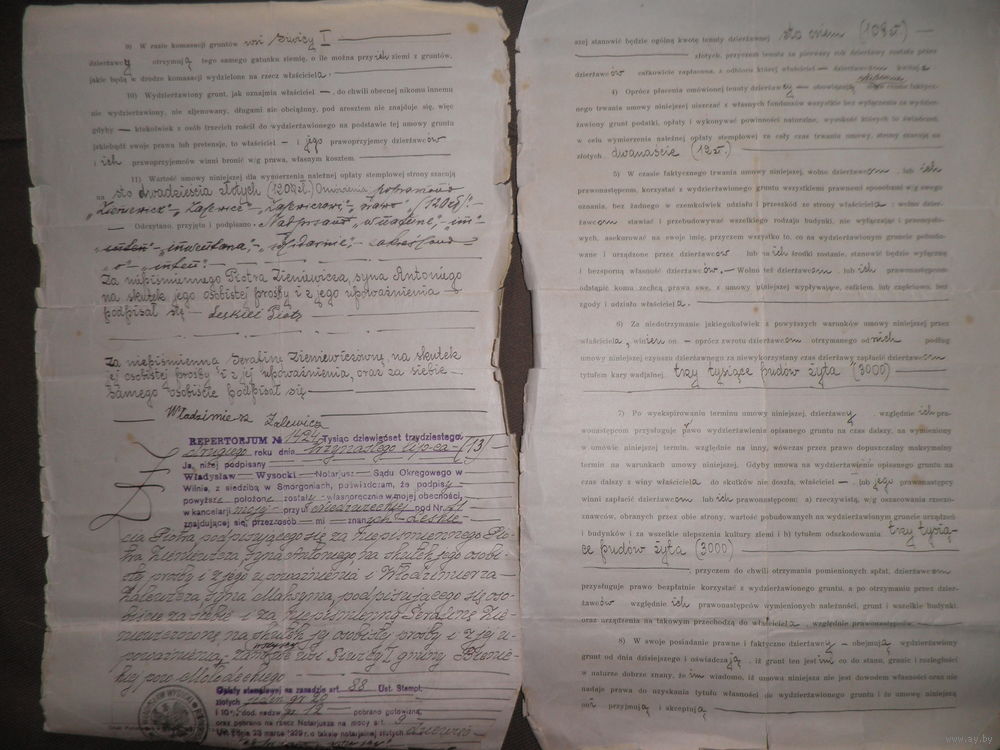 9) W razie komasacji gruntów wsi
dzierżawcy otrzymają tego samego gatunku ziemię, o ile można przyległej ziemi z gruntów,
jakie będą w drodze komasacji wydzielone na rzecz właściciela.
10) Wydzierżawiony grunt, jak oznajmia właściciel —, do chwili obecnej nikomu innemu
nie wydzierżawiony, nie aljenowany, długami nie obciążony, pod aresztem nie znajduje się, więc
gdyby — ktokolwiek z osób trzecich rościł do wydzierżawionego na podstawie tej umowy gruntu
jakiebądź swoje prawa lub pretensje, to właściciel — i jego prawoprzejemcy dzierżawców
i ich prawoprzejemców winni bronić w/g prawa, własnym kosztem
11) Wartość umowy niniejszej dla wymierzenia należnej opłaty stemplowej strony szacują
na sto dwadzieścia złotych (120 zł.)
Odczytano, przyjęto i podpisano.
Za niepiśmiennego Piotra Zieniewicza, syna Antoniego
na skutek jego osobistej prośby i z jego upoważnienia —
podpisał się — Leskieć Piotr
Za niepiśmienną Serafinę Zieniewiczównę, na skutek
jej osobistej prośby i z jej upoważnienia, oraz za siebie —
samego osobiście podpisał się —
Włodzimierz Zalewicz
REPERTORJUM № 1424 Tysiąc dziewięćset trzydziestego
drugiego roku dnia trzynastego lipca (13)
Ja, niżej podpisany
Władysław Wysocki — Notarjusz Sądu Okręgowego w
Wilnie, z siedzibą w Smorgoniach, poświadczam, że podpisy
powyższe położone zostały własnoręcznie w mojej obecności,
w kancelarji mojej przy ul. pod Nr.
znajdującej się, przez osób — mi — znanych — Leskie-
cia Piotra podpisującego się za niepiśmiennego Pio-
tra Zieniewicza syna Antoniego, na skutek jego osobi-
stej prośby i z jego upoważnienia i Włodzimierza —
Zalewicza syna Maksyma, podpisującego się oso-
biście za siebie i za niepiśmienną Serafinę Zie-
niewiczównę na skutek jej osobistej prośby i z jej u-
poważnienia, zam. we wsi I gminy
pow. Mołodeckiego
Opłaty stemplowej na zasadzie art. 88 Ust. Stempl.
złotych jeden gr. 20
i 10% dod. nadzw. gr. 12 pobrano gotowizną,
oraz pobrano na rzecz Notarjusza na mocy art.
Ust. z dnia 23 marca 1929 r. o taksie notarjalnej złotych
szej stanowić będzie ogólną kwotę tenuty dzierżawnej sto osiem (108 zł) —
złotych, przyczem tenuta za pierwszy rok dzierżawy została przez
dzierżawców całkowicie zapłacona, z odbioru której właściciel — dzierżawców kwituje
4) Oprócz płacenia omówionej tenuty dzierżawcy —
nego trwania umowy niniejszej uiszczać z własnych funduszów wszystkie bez wyłączenia za wydzier-
żawiony grunt podatki, opłaty i wykonywać powinności naturalne, wysokość których to świadczeń,
w celu wymierzenia należnej opłaty stemplowej za cały czas trwania umowy, strony szacują na
złotych dwanaście (12 zł.)
5) W czasie faktycznego trwania umowy niniejszej, wolno dzierżawcom, lub ich
prawonastępcom, korzystać z wydzierżawionego gruntu wszystkiemi prawnemi sposobami w/g swego
uznania, bez żadnego w czemkolwiek udziału i przeszkód ze strony właściciela; wolno dzier-
żawcom stawiać i przebudowywać wszelkiego rodzaju budynki, nie wyłączając i przemysło-
wych, asekurować na swoje imię, przyczem wszystko to, co na wydzierżawionym gruncie pobudo-
wane i urządzone przez dzierżawców lub na ich środki zostanie, stanowić będzie wyłączną
i bezsporną własność dzierżawców. — Wolno też dzierżawcom, lub ich prawonastępcom
odstąpić komu zechcą prawa swe, z umowy niniejszej wypływające, całkiem lub częściowo, bez
zgody i udziału właściciela.
6) Za niedotrzymanie jakiegokolwiek z powyższych warunków umowy niniejszej przez
właściciela, winien on — oprócz zwrotu dzierżawcom otrzymanego od nich podług
umowy niniejszej czynszu dzierżawnego za niewykorzystany czas dzierżawy zapłacić dzierżawcom
tytułem kary wadjalnej, trzy tysiące pudów żyta (3000)
7) Po wyekspirowaniu terminu umowy niniejszej, dzierżawcy, względnie ich pra-
wonastępcom przysługuje prawo wydzierżawienia opisanego gruntu na czas dalszy, na wymieniony
w umowie niniejszej termin, względnie na inny, wówczas przez prawo dopuszczalny maksymalny
termin na warunkach umowy niniejszej. Gdyby umowa na wydzierżawienie opisanego gruntu na
czas dalszy z winy właściciela do skutków nie doszła, właściciel —, lub jego prawonastępcy
winni zapłacić dzierżawcom lub ich prawonastępcom: a) rzeczywistą, w/g oszacowania rzeczo-
znawców, obranych przez obie strony, wartość pobudowanych na wydzierżawionym gruncie urządzeń
i budynków i za wszelkie ulepszenia kultury ziemi i b) tytułem odszkodowania trzy tysią-
ce pudów żyta (3000)
, przyczem do chwili otrzymania pomienionych spłat, dzierżawcom
przysługuje prawo bezpłatnie korzystać z wydzierżawionego gruntu, a po otrzymaniu przez dzier-
żawców względnie ich prawonastępców wymienionych należności, grunt i wszelkie budynki
oraz urządzenia na takowym przechodzą do właściciela, względnie prawonastępców
8) W swoje posiadanie prawne i faktyczne dzierżawcy — obejmują wydzierżawiony
grunt od dnia dzisiejszego i oświadczają, iż grunt ten jest im co do stanu, granic i rozległości
w naturze dobrze znany, że im wiadomo, iż umowa niniejsza nie jest dowodem własności oraz nie
nadaje prawa do uzyskania tytułu własności do wydzierżawionego gruntu i że umowę niniejszą
oni przyjmują i akceptują
www.ay.by